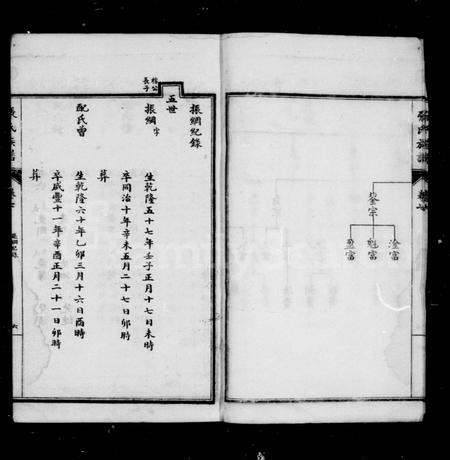 鋆宗
淦富
兝富
盈富
振綱紀錄
五世
榕公
長子
振綱字
生乾隆五十七年壬子正月十七日未時
卒同治十年辛未五月二十七日卯時
葬
配氏曾
生乾隆六十年乙卯三月十六日酉時
卒咸豐十一年辛酉正月二十一日卯時
葬
振綱紀錄
六